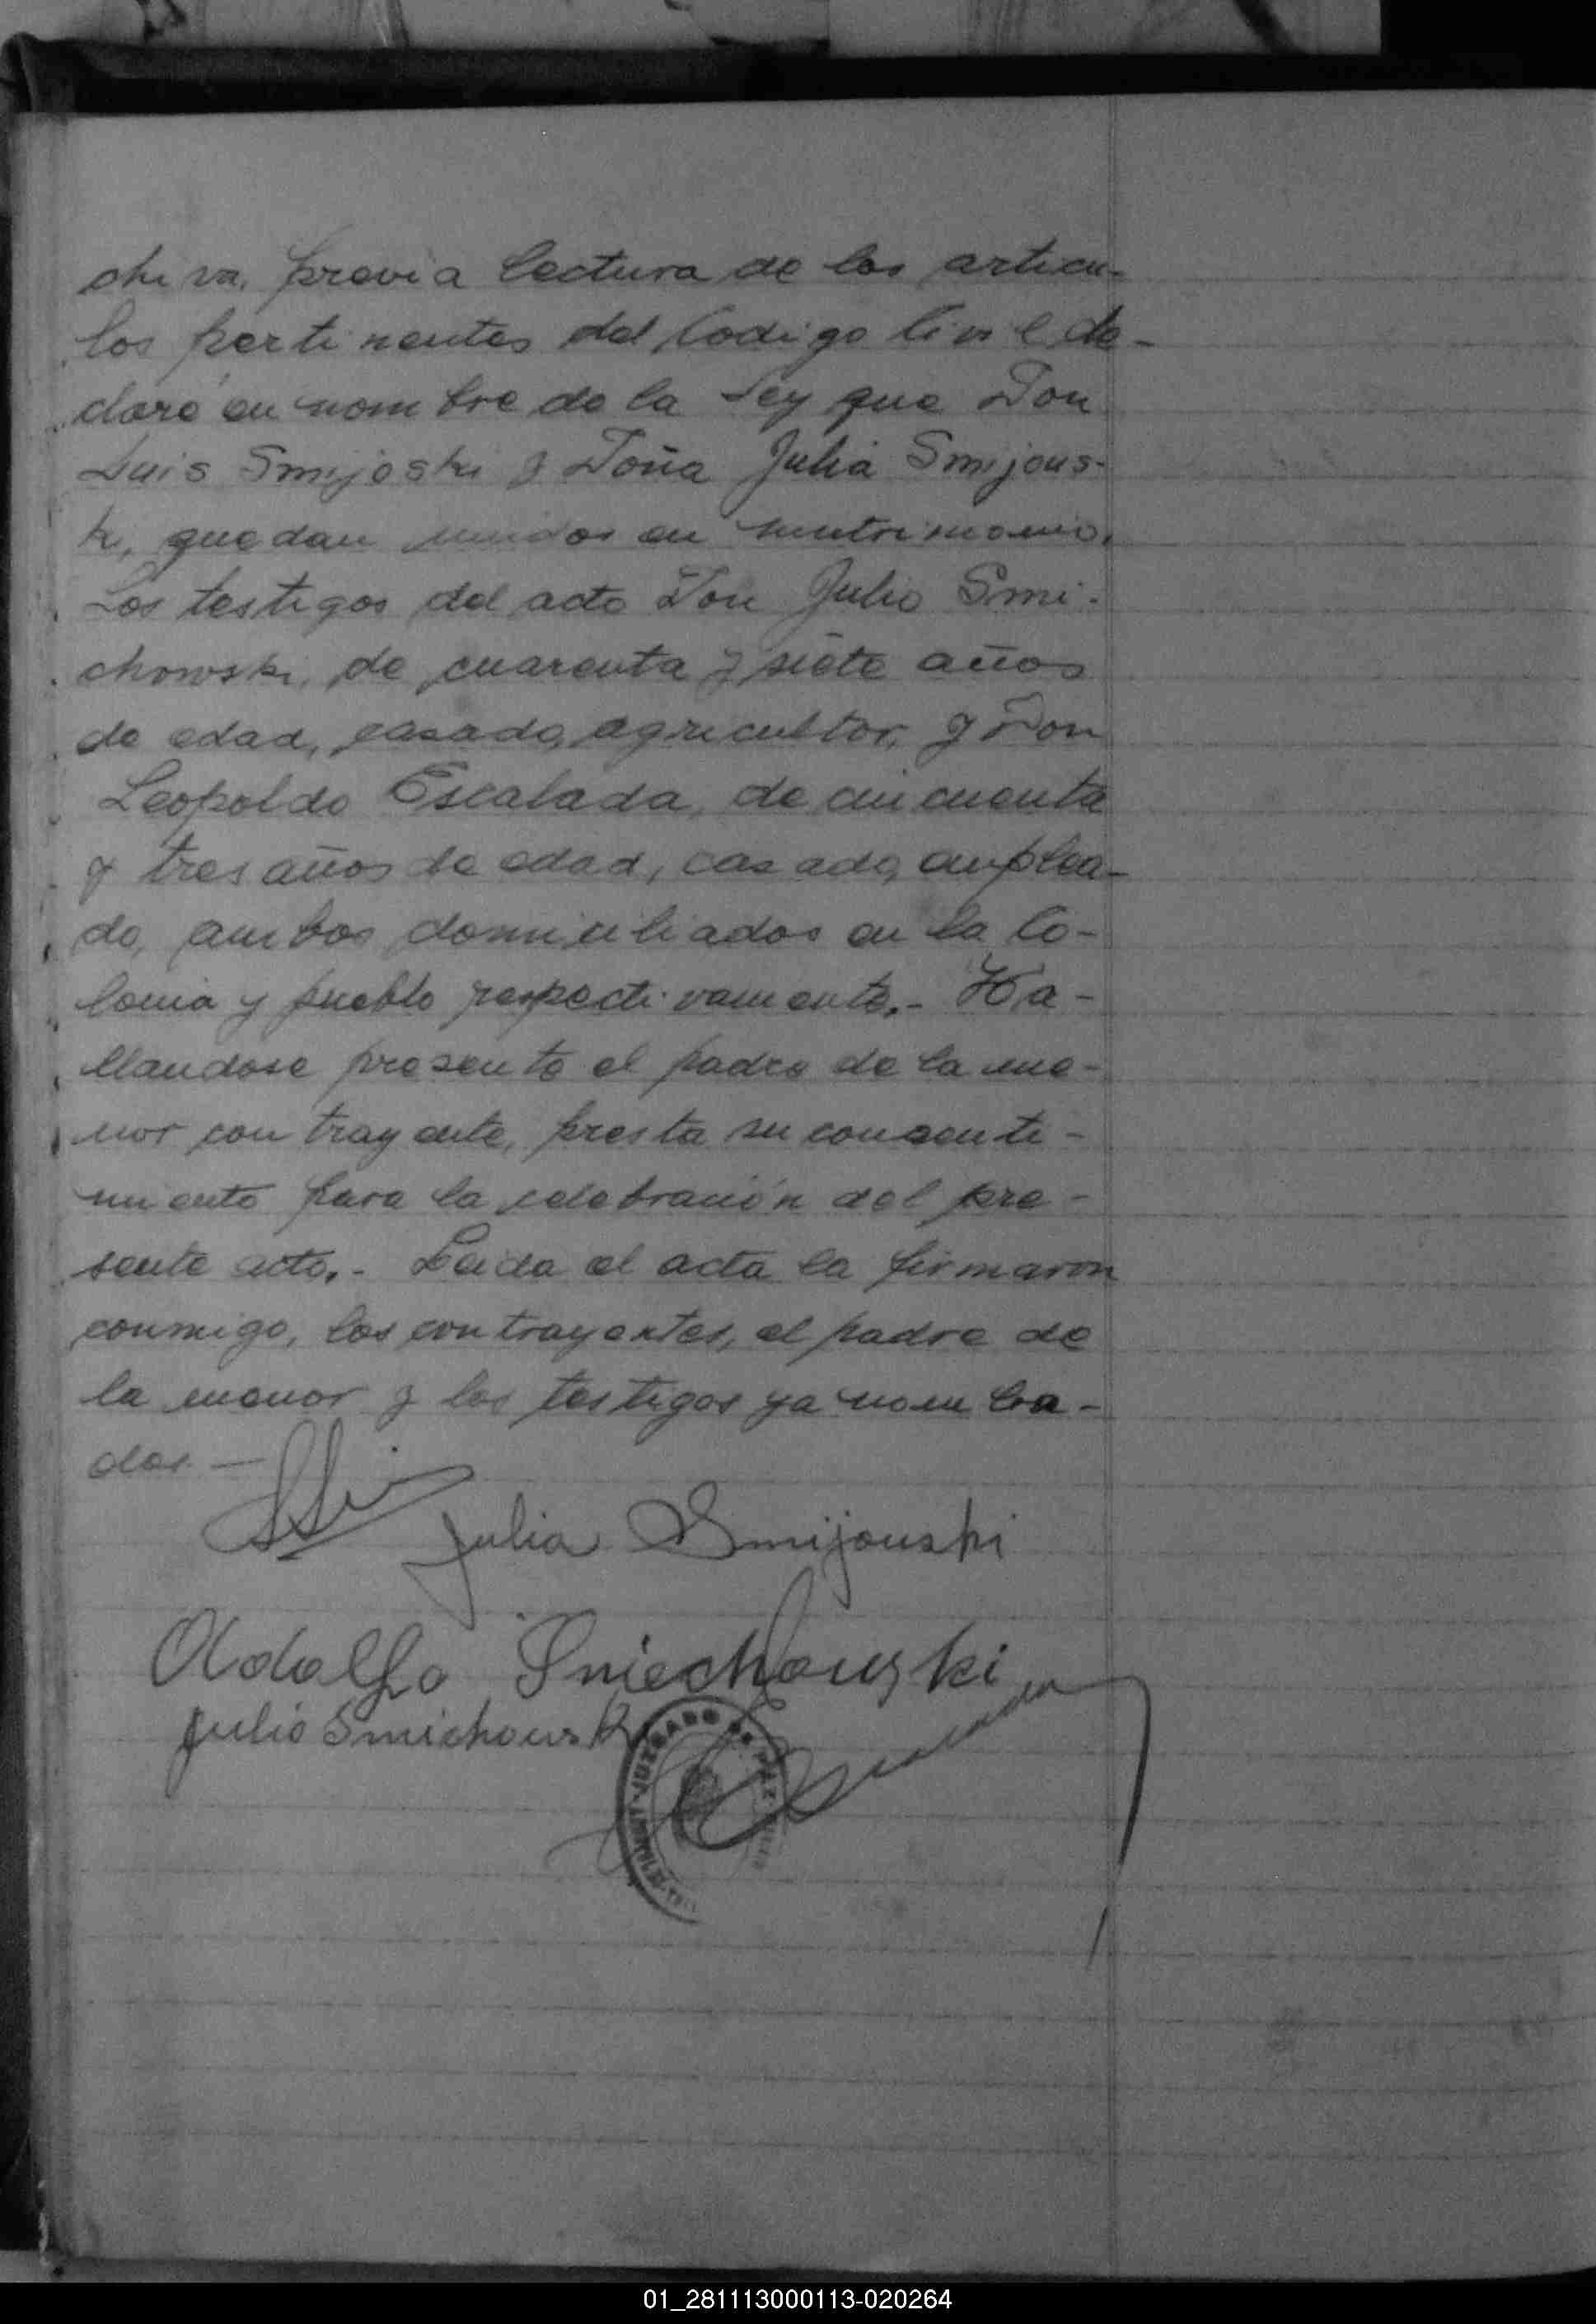 chiva, previa lectura de los articu-
los pertinentes del Codigo Civil de-
claré en nombre de la Ley que Don
Luis Smijoski y Doña Julia Smijous-
ki, quedan unidos en matrimonio.
Los testigos del acto Don Julio Smi-
chowski, de cuarenta y siete años
de edad, casado, agricultor, y Don
Leopoldo Escalada, de cincuenta
y tres años de edad, casado, emplea-
do, ambos domiciliados en la Co-
lonia y pueblo respectivamente.- Ha-
llandose presente el padre de la me-
nor contrayente, presta su consenti-
miento para la celebración del pre-
sente acto.- Leida el acta la firmaron
conmigo, los contrayentes, el padre de
la menor y los testigos ya nombra-
dos.—
Julia Smijouski
Adolfo Sniechouski
Julio Smichouski
JUZGADO DE PAZ
01_281113000113-020264